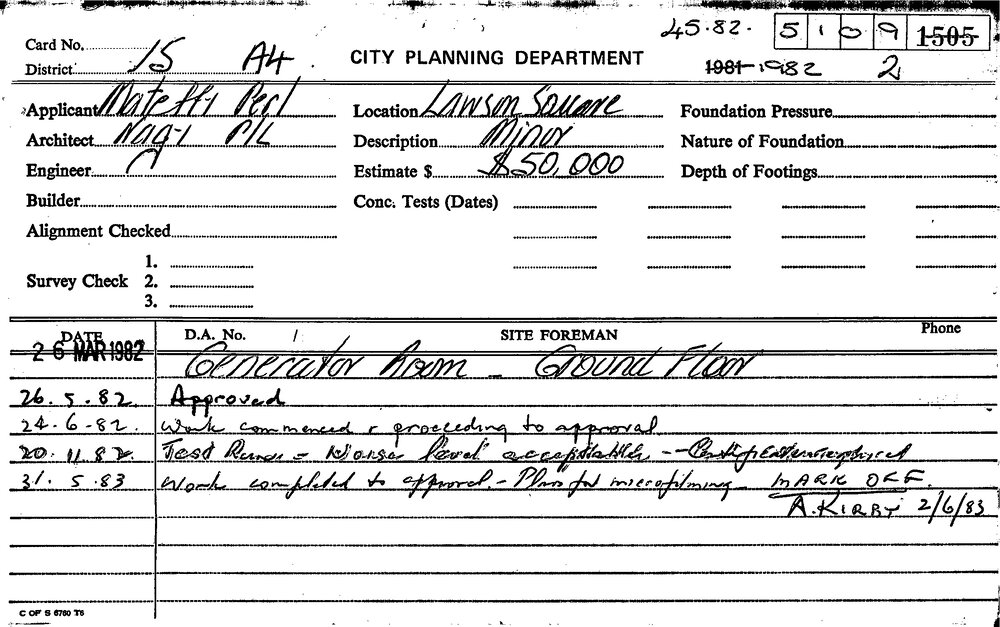 45.82. 5 1 0 9 1505
Card No.
District 15 A4
CITY PLANNING DEPARTMENT
1981 1982 2
Applicant Mateffi Perl Location Lawson Square Foundation Pressure
Architect Nagy P/L Description Minor Nature of Foundation
Engineer Estimate $ $50,000 Depth of Footings
Builder Conc. Tests (Dates)
Alignment Checked
1.
Survey Check 2.
3.
DATE D.A. No. SITE FOREMAN Phone
26 MAR 1982 Generator Room - Ground Floor
26.5.82 Approved
24-6-82. Work commenced & proceeding to approval
20.11.82 Test Run - Noise level acceptable -
31.5.83 Work completed to approval - Plans for microfilming - MARK OFF.
A. KIRBY 2/6/83
C OF S 6760 T6